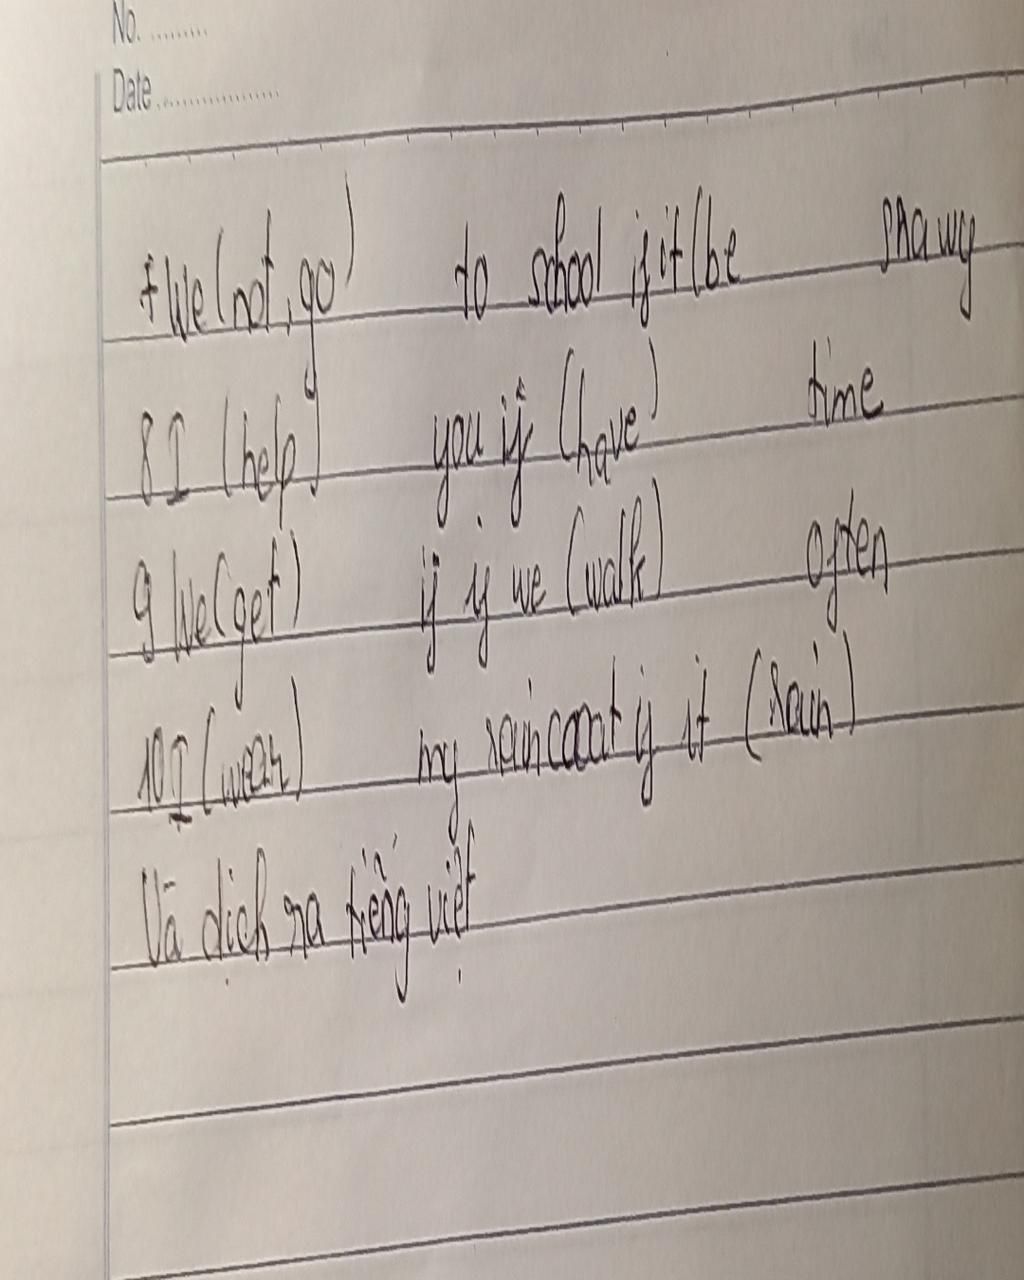 No. ........
Date .................
7 We (not, go) to school if it (be snawy
8 I (help) you if (have) time
9 We (get) if if we (walk) often
10 I (wear) my raincoaat if it (rain)
Và dịch ra tiếng việt